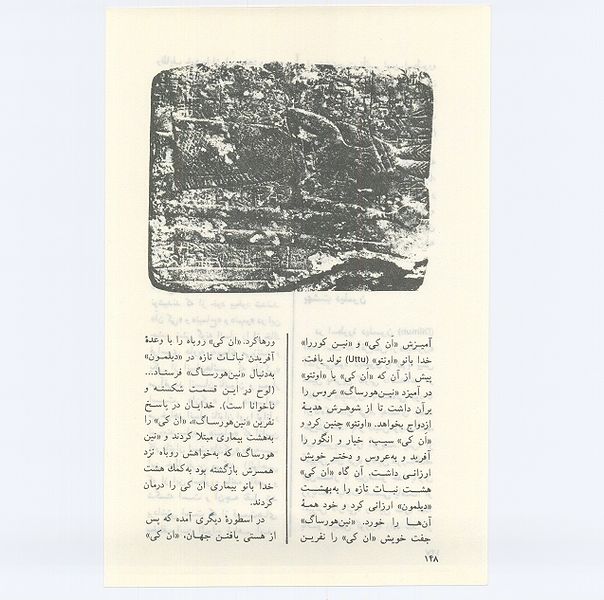 آمیزش «ان کی» و «نین کوررا»
خدا بانو «اوتتو» (Uttu) تولد یافت.
پیش از آن که «ان کی» با «اوتتو»
در آمیزد «نین‌هورساگ» عروس را
برآن داشت تا از شوهرش هدیهٔ
ازدواج بخواهد. «اوتتو» چنین کرد و
«ان کی» سیب، خیار و انگور را
آفرید و به‌عروس و دختر خویش
ارزانی داشت. آن گاه «ان کی»
هشت نبات تازه را به‌بهشت
«دیلمون» ارزانی کرد و خود همهٔ
آن‌ها را خورد. «نین‌هورساگ»
جفت خویش «ان کی» را نفرین
ورهاکرد. «ان کی» روباه را با وعدهٔ
آفریدن نباتات تازه در «دیلمون»
به‌دنبال «نین‌هورساگ» فرستاد...
(لوح در این قسمت شکسته و
ناخوانا است). خدایان در پاسخ
نفرین «نین‌هورساگ»، «ان کی» را
به‌هشت بیماری مبتلا کردند و «نین
هورساگ» که به‌خواهش روباه نزد
همسرش بازگشته بود به‌کمك هشت
خدا بانو بیماری ان کی را درمان
کردند.
در اسطورهٔ دیگری آمده که پس
از هستی یافتن جهان، «ان کی»
۱۴۸